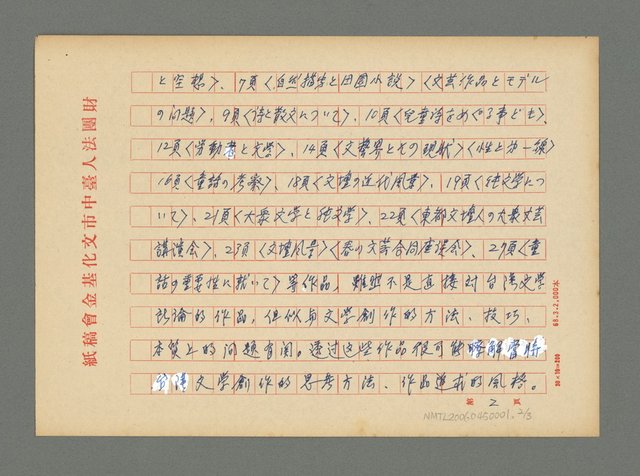 と空想〉、7頁〈自然描写と田園小說〉〈文芸作品とモデル
の问题〉、9頁〈詩と散文について〉、10頁〈児童詩をめぐる事ども〉、
12頁〈労動者と文学〉、14頁〈文藝界とその現狀〉〈性と力一線〉
16頁〈童話の考察〉、18頁〈文壇の近代風景〉、19頁〈純文学につ
いて〉、21頁〈大衆文学と純文学〉、22頁〈東都文壇人の大衆文芸
講演会〉、23頁〈文壇风景〉〈春の文芸合同座談会〉、27頁〈童
話の重要性に就いて〉等作品，雖然不是直接对台湾文学
討論的作品，但似与文学創作的方法、技巧、
本質上的问題有関。透过这些作品很可能瞭解當時
台灣文学創作的思考方法、作品追求的风格。
第2頁
財團法人臺中市文化基金會稿紙
68.2.2,000本
20×10=200
NMTL20060450001. 2/3